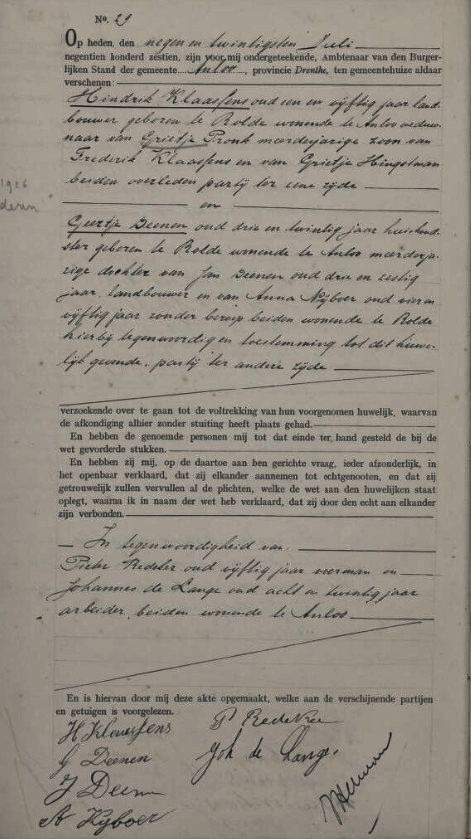 No. 29
Op heden, den negen en twintigsten Juli
negentien honderd zestien, zijn voor mij ondergeteekende, Ambtenaar van den Burger-
lijken Stand der gemeente Anloo, provincie Drenthe, ten gemeentehuize aldaar
verschenen:
Hindrik Klaassens oud een en vijftig jaar land-
bouwer geboren te Rolde wonende te Anloo weduw-
naar van Grietje Pronk meerderjarige zoon van
Frederik Klaassens en van Grietje Hingstman
beiden overleden partij ter eene zijde
en
Geertje Deenen oud drie en twintig jaar huishoud-
ster geboren te Rolde wonende te Anloo meerderja-
rige dochter van Jan Deenen oud drie en zestig
jaar, landbouwer en van Anna Nijboer oud vier en
vijftig jaar zonder beroep beiden wonende te Rolde
hierbij tegenwoordig en toestemming tot dit huwe-
lijk gevende, partij ter andere zijde
1916
verzoekende over te gaan tot de voltrekking van hun voorgenomen huwelijk, waarvan
de afkondiging alhier zonder stuiting heeft plaats gehad.
En hebben de genoemde personen mij tot dat einde ter hand gesteld de bij de
wet gevorderde stukken.
En hebben zij mij, op de daartoe aan ben gerichte vraag, ieder afzonderlijk, in
het openbaar verklaard, dat zij elkander aannemen tot echtgenooten, en dat zij
getrouwelijk zullen vervullen al de plichten, welke de wet aan den huwelijken staat
oplegt, waarna ik in naam der wet heb verklaard, dat zij door den echt aan elkander
zijn verbonden.
In tegenwoordigheid van
Pieter Redeker oud vijftig jaar veerman en
Johannes de Lange oud acht en twintig jaar
arbeider, beiden wonende te Anloo
En is hiervan door mij deze akte opgemaakt, welke aan de verschijnende partijen
en getuigen is voorgelezen.
H Klaassens P Redeker
G Deenen Joh de Lange
J Deenen
A Nijboer